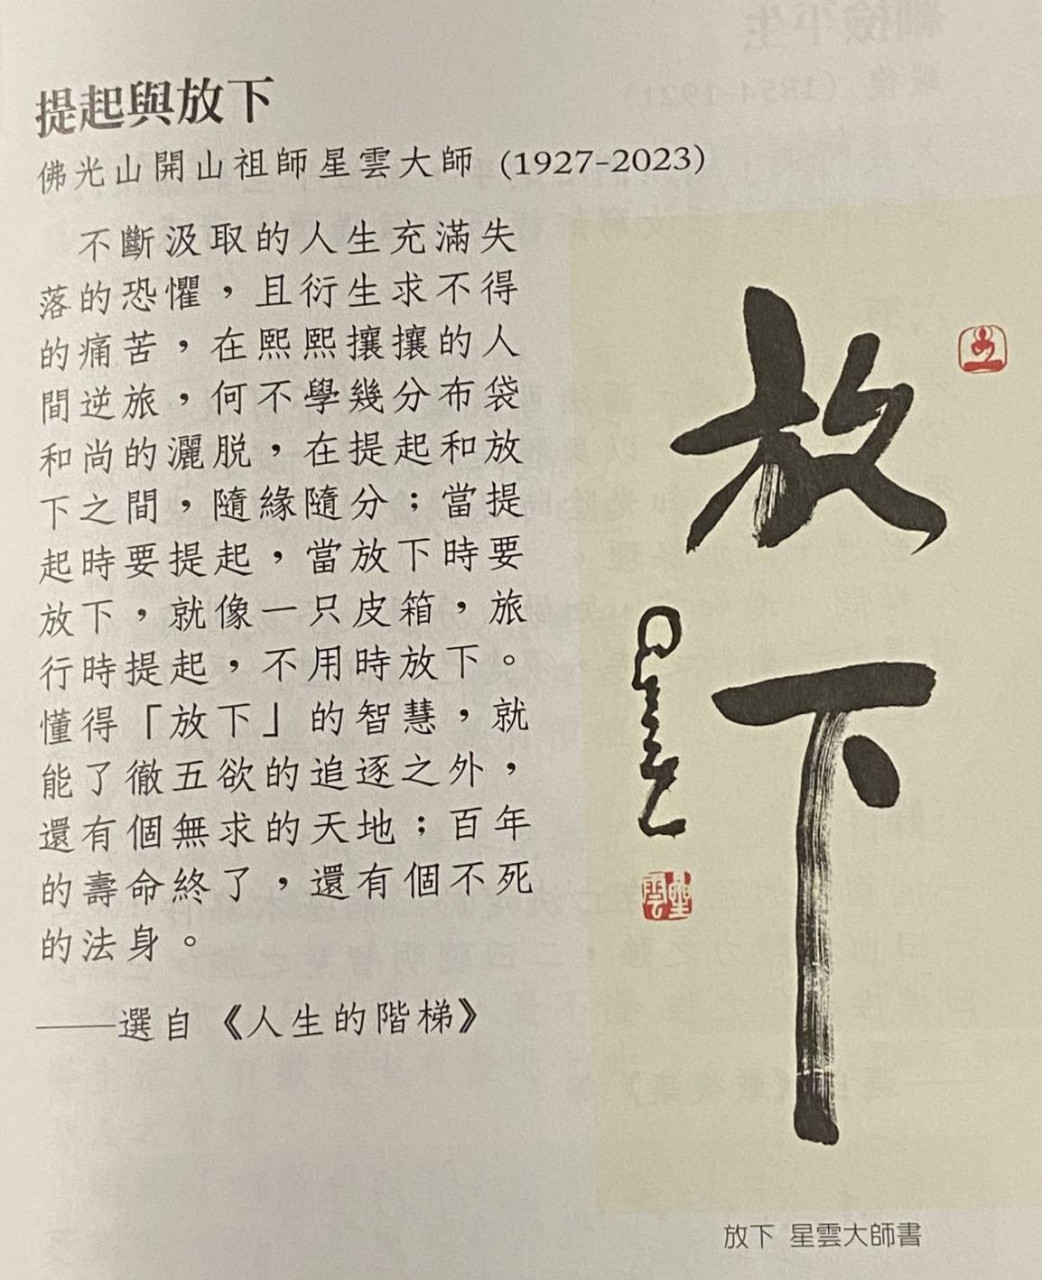 提起與放下
佛光山開山祖師星雲大師 (1927-2023)
不斷汲取的人生充滿失
落的恐懼，且衍生求不得
的痛苦，在熙熙攘攘的人
間逆旅，何不學幾分布袋
和尚的灑脫，在提起和放
下之間，隨緣隨分；當提
起時要提起，當放下時要
放下，就像一只皮箱，旅
行時提起，不用時放下。
懂得「放下」的智慧，就
能了徹五欲的追逐之外，
還有個無求的天地；百年
的壽命終了，還有個不死
的法身。
——選自《人生的階梯》
放下
星雲
星雲
放下 星雲大師書